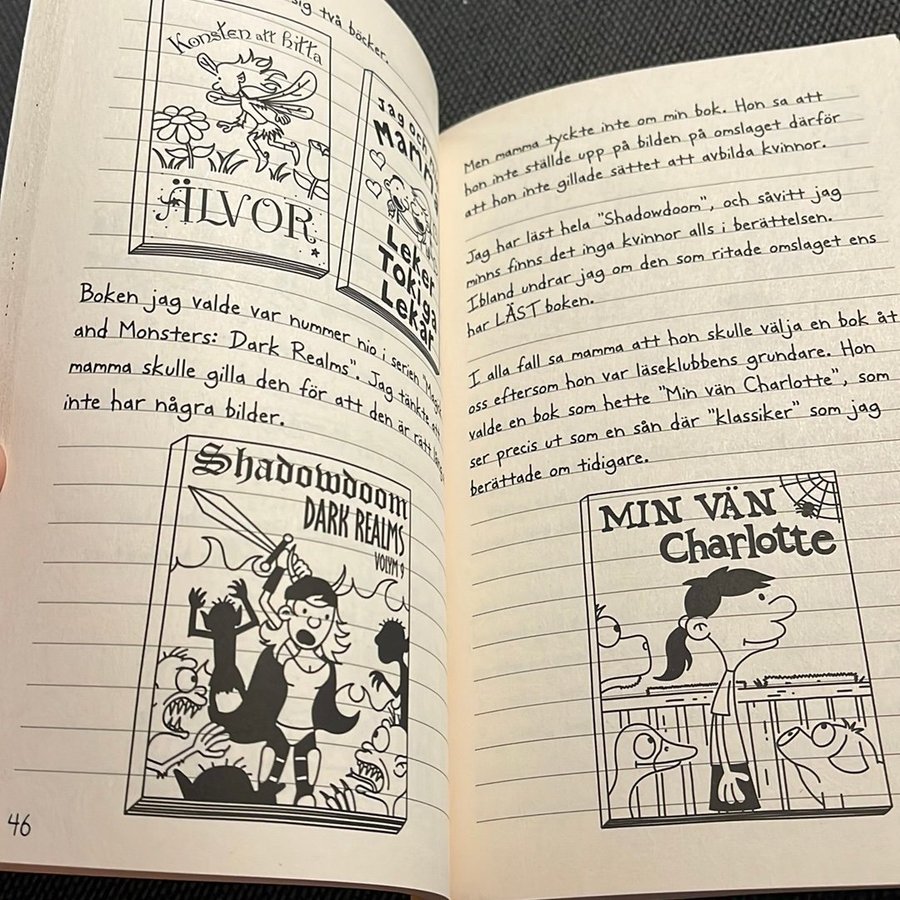 sig två böcker.
Konsten att hitta
ÄLVOR
Jag och
Leker
Tokiga
Lekar
Boken jag valde var nummer nio i serien
and Monsters: Dark Realms". Jag tänkte att
mamma skulle gilla den för att den är rätt
inte har några bilder.
Shadowdoom
DARK REALMS
VOLYM 9
46
Men mamma tyckte inte om min bok. Hon sa att
hon inte ställde upp på bilden på omslaget därför
att hon inte gillade sättet att avbilda kvinnor.
Jag har läst hela "Shadowdoom", och såvitt jag
minns finns det inga kvinnor alls i berättelsen.
Ibland undrar jag om den som ritade omslaget ens
har LÄST boken.
I alla fall sa mamma att hon skulle välja en bok åt
oss eftersom hon var läseklubbens grundare. Hon
valde en bok som hette "Min vän Charlotte", som
ser precis ut som en sån där "klassiker" som jag
berättade om tidigare.
MIN VÄN
Charlotte